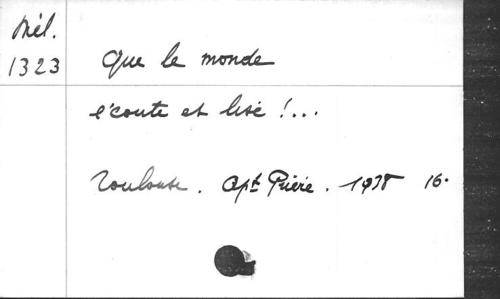 Mél.
1323
Que le monde
écoute et lise !...
Toulouse. Apt Prière. 1938 16.